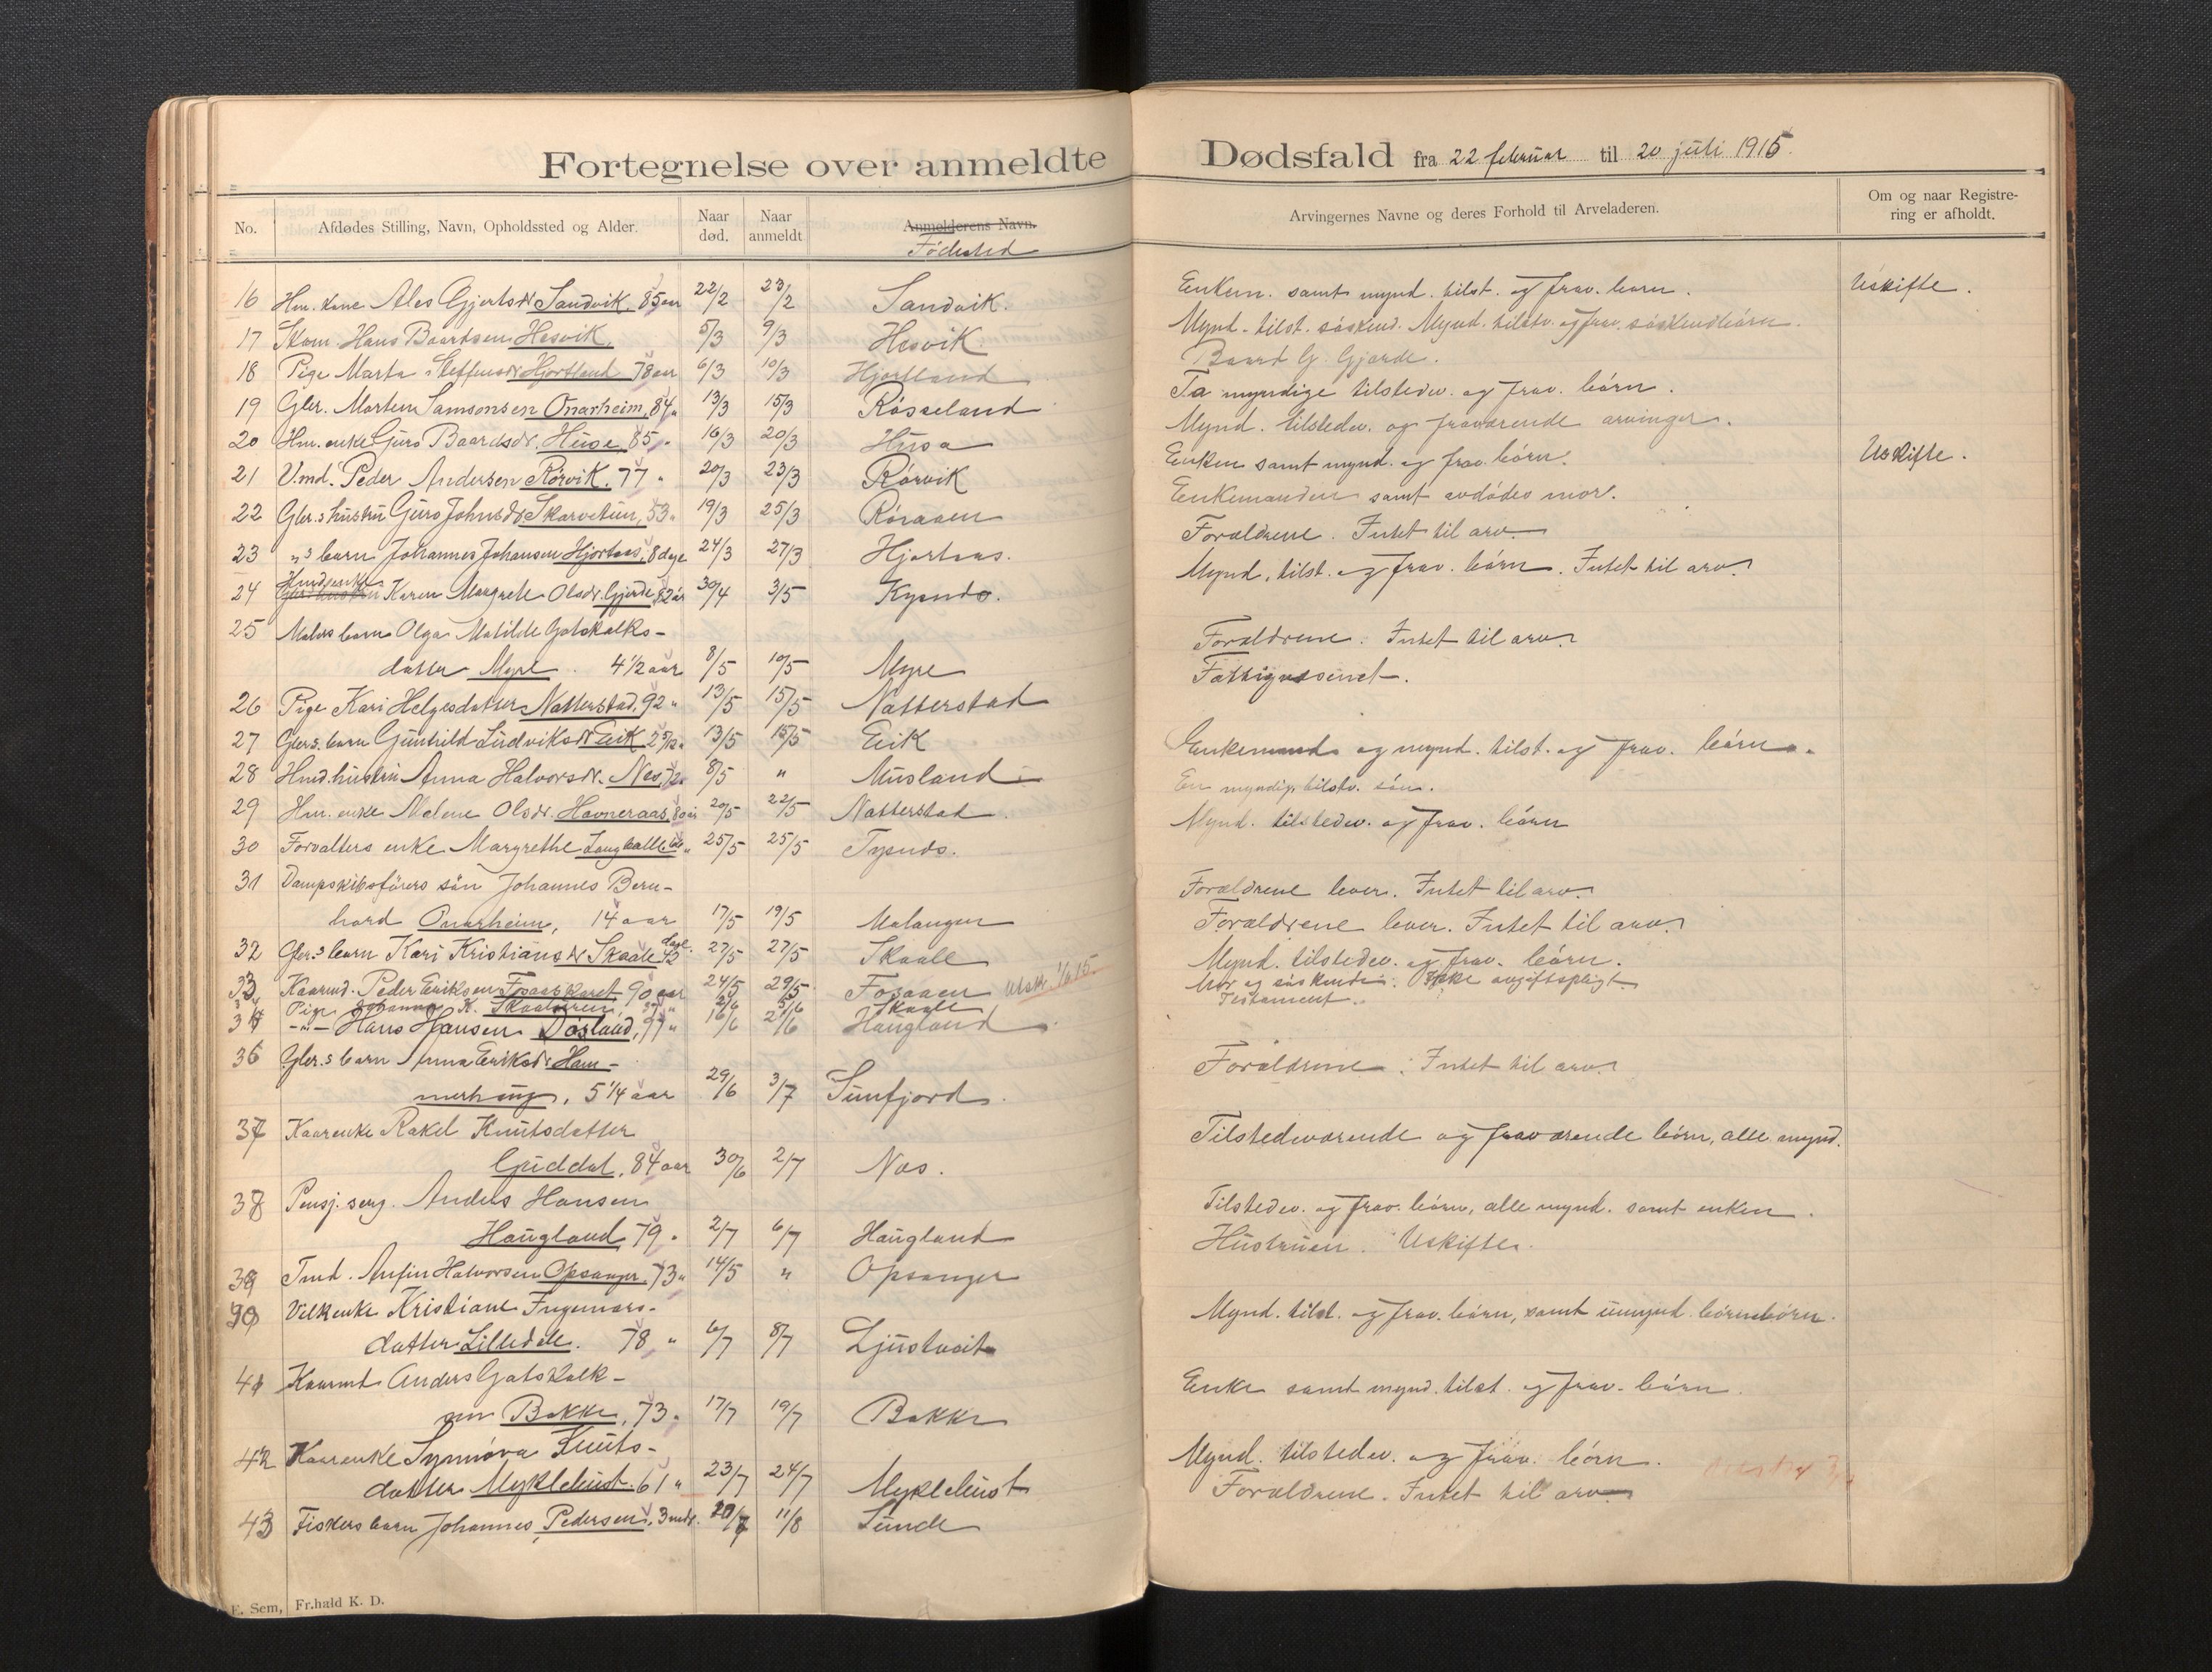 Fortegnelse over anmeldte
No. Afdødes Stilling, Navn, Opholdssted og Alder. Naar død. Naar anmeldt Anmelderens Navn. Fødested
16 Hm. kone Ales Gjertsdr Sandvik. 85 aar 22/2 23/2 Sandvik.
17 Skom. Hans Baardsen Hesvik. 5/3 9/3 Hesvik.
18 Pige Marta Steffensdr Hjortland 78 aar 6/3 10/3 Hjortland
19 Gbr. Morten Samsonsen Onarheim, 84 " 13/3 15/3 Røsseland
20 Hm. enke Guro Baardsdr. Huse 85 " 16/3 20/3 Husa
21 Vmd. Peder Andersen Rørvik. 77 " 20/3 23/3 Rørvik
22 Gbr.s hustru Guro Johnsdr Skarvetun, 53 " 19/3 25/3 Røraaen
23 "s barn Johannes Johansen Hjortaas, 8 dage 24/3 27/3 Hjortaas.
24 Hmdsenke Karen Margrete Olsdr. Gjerde 82 år 30/4 3/5
25 Malers barn Olga Matilde Gotskalks-
datter Myre. 4 1/2 aar 8/5 10/5 Myre
26 Pige Kari Helgesdatter Natterstad, 92 " 13/5 15/5 Natterstad
27 Gbrs. barn Gunhild Ludviksdr Eik 13/5 15/5 Eik
28 Hmd. hustru Anna Halvorsdr. Nes, 72 " 8/5 " Musland
29 Hm. enke Malene Olsdr. Hovneraas, 80 år 20/5 22/5 Natterstad.
30 Forvalters enke Margrethe 25/5 25/5 Tysnes.
31 Dampskibsførers søn Johannes Bern-
hard Onarheim, 14 aar 17/5 19/5 Malangen
32 Gbr.s barn Kari Kristiansdr Skaale dage 27/5 27/5 Skaale
33 Kaarmd. Peder Eriksen 90 aar 24/5 29/5 Fosaaen
Pige K. 2/6 5/6 Skaale
-"- Hans Hansen Døsland, 97 " 16/6 21/6 Haugland
36 Gbr.s barn Anna Eriksdr Ham-
merhaug, 5 1/4 aar 29/6 3/7 Sunfjord.
37 Kaarenke Rakel Knutsdatter
Guddal, 84 aar 30/6 2/7 Nes.
38 Pensj. serg. Anders Hansen
Haugland 79 " 2/7 6/7 Haugland
39 Tmd. Anfin Halvorsen Opsanger, 73 " 14/5 " Opsanger
40 Vilkenke Kristiane Ingemars-
datter Lilledale. 78 " 6/7 8/7 Ljustveit
41 Kaarmd Anders Gotskalk-
sen Bakke, 73 " 17/7 19/7 Bakke
42 Kaarenke Synnøva Knuts-
datter Myklebust. 61 " 23/7 24/7 Myklebust
43 Fiskers barn Johannes Pedersen, 3 mdr. 20/7 11/8 Sunde
E. Sem, Fr.hald K. D.
Dødsfald fra 22 februar til 20 juli 1915.
Arvingernes Navne og deres Forhold til Arveladeren. Om og naar Registrering er afholdt.
Enken. samt mynd. tilst. og frav. barn. Uskifte.
Mynd. tilst. søskend. Mynd. tilstv. og frav. søskendbørn.
Baard G. Gjerde.
To myndige tilstedev. og frav. børn.
Mynd. tilstedev. og fraværende arvinger.
Enken samt mynd. og frav. børn. Uskifte.
Enkemanden samt avdødes mor.
Forældrene. Intet til arv.
Mynd. tilst. og frav. børn. Intet til arv.
Forældrene. Intet til arv.
Fattigvæsenet.
Enkemand og mynd. tilst. og frav. børn.
En myndig tilstv. søn.
Mynd. tilstedev. og frav. børn
Forældrene lever. Intet til arv.
Forældrene lever. Intet til arv.
Mynd. tilstedev. og frav. børn.
Mor og søskende. Ikke avgiftspligt
Testament.
Forældrene. Intet til arv.
Tilstedeværende og fraværende børn, alle mynd.
Tilstedev. og frav. børn, alle mynd. samt enken.
Hustruen. Uskifte.
Mynd. tilst. og frav. børn, samt umynd. børnebørn.
Enke samt mynd. tilst. og frav. børn.
Mynd. tilstedev. og frav. børn.
Forældrene. Intet til arv